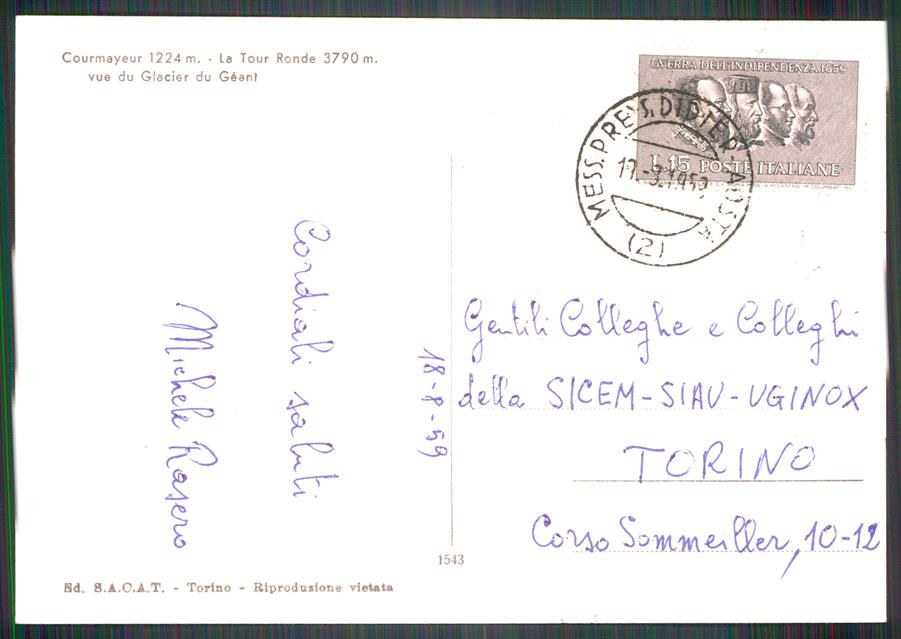 Courmayeur 1224 m. - La Tour Ronde 3790 m.
vue du Glacier du Géant
GUERRA DELL'INDIPENDENZA 1859
L. 15 POSTE ITALIANE
MESS. PRE S. DIDIER - AOSTA
(2)
Cordiali saluti
Michele Rasero
18-8-59
Gentili Colleghe e Colleghi
della SICEM-SIAU-UGINOX
TORINO
Corso Sommeiller, 10-12
1543
Ed. S.A.C.A.T. - Torino - Riproduzione vietata